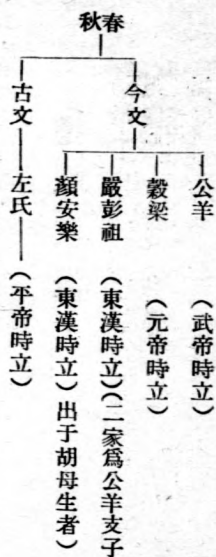 春秋
今文
公羊（武帝時立）
穀梁（元帝時立）
嚴彭祖（東漢時立）（二家爲公羊支子
顏安樂（東漢時立）出于胡母生者）
古文——左氏——（平帝時立）